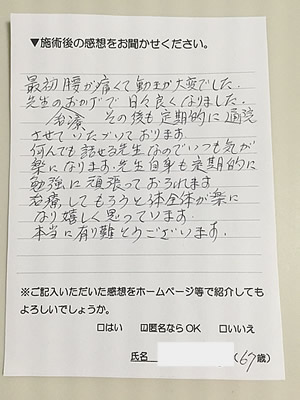 ▼施術後の感想をお聞かせください。
最初腰が痛くて動きが大変でした。
先生のおかげで日々良くなりました。
治療 その後も定期的に通院
させていただいております。
何んでも話せる先生なのでいつも気が
楽になります。先生自身も定期的に
勉強に頑張っておられます
治療してもらうと体全体が楽に
なり嬉しく思っています。
本当に有り難とうございます。
※ご記入いただいた感想をホームページ等で紹介しても
よろしいでしょうか。
□はい ☑匿名ならOK □いいえ
氏名 (67歳)